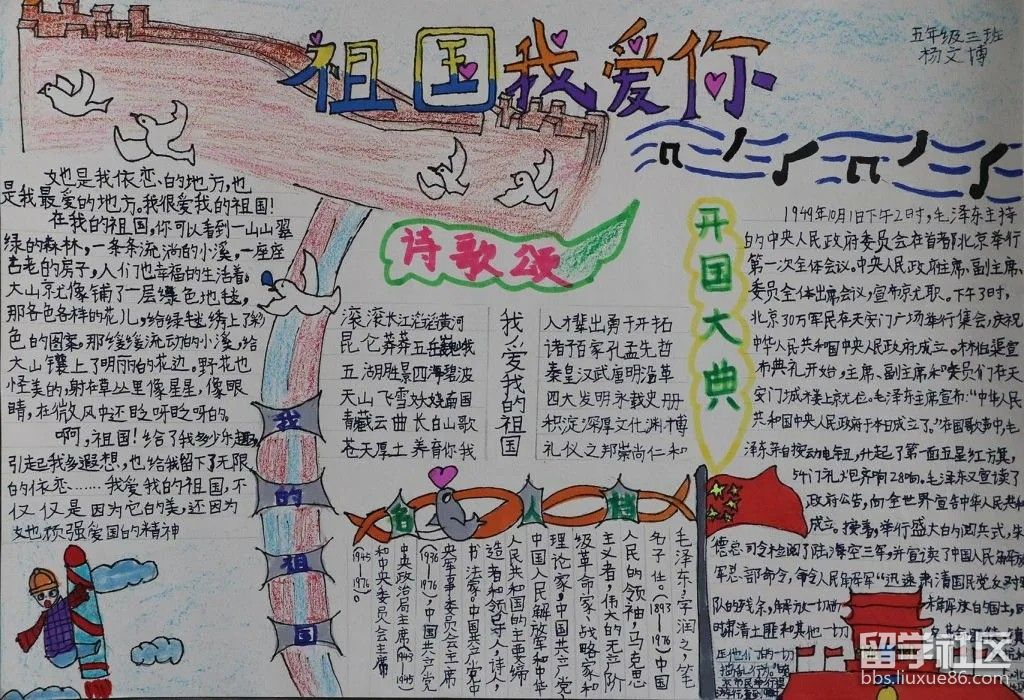 祖国我爱你
五年级三班
杨文博
她是我依恋的地方,也
是我最爱的地方。我很爱我的祖国!
在我的祖国,你可以看到一山山翠
绿的森林,一条条流淌的小溪,一座座
古老的房子,人们也幸福的生活着。
大山就像铺了一层绿色地毯,
那各色各样的花儿,给绿毯绣上了彩
色的图案。那缓缓流动的小溪,给
大山镶上了明丽的花边。野花也
怪美的,躲在草丛里像星星,像眼
睛,在微风中还眨呀眨呀的。
啊,祖国!给了我多少乐趣,
引起我多遐想,也给我留下了无限
的依恋……我爱我的祖国,不
仅仅是因为它的美,还因为
她顽强爱国的精神
我的祖国
诗歌颂
滚滚长江滔滔黄河
昆仑莽莽五岳巍峨
五湖胜景四海碧波
天山飞雪妙娆南国
青藏云曲长白山歌
苍天厚土养育你我
我爱我的祖国
人才辈出勇于开拓
诸子百家孔孟先哲
秦皇汉武唐明沿革
四大发明永载史册
积淀深厚文化渊博
礼仪之邦崇尚仁和
名人档
毛泽东,字润之,笔
名子任(1893—1976)中国
人民的领袖,马克思
主义者,伟大的无产阶
级革命家、战略家和
理论家,中国共产党
中国人民解放军和中华
人民共和国的主要缔
造者和领导,诗人,
书法家。中国共产党中
央军事委员会主席
(1936—1976),中国共产党
中央政治局主席(1943
和中央委员会主席
(1945—1976)。
开国大典
1949年10月1日下午2时,毛泽东主持
的中央人民政府委员会在首都北京举行
第一次全体会议。中央人民政府主席、副主席、
委员全体出席会议,宣布就职。下午3时,
北京30万军民在天安门广场举行集会,庆祝
中华人民共和国中央人民政府成立。林伯渠宣
布典礼开始,主席、副主席和委员们在天
安门城楼上就位。毛泽东主席宣布:“中华人民
共和国中央人民政府于本日成立了。”在国歌声中,毛
泽东亲自按动电钮,升起了第一面五星红旗,
54门礼炮齐响28响。毛泽东又宣读了
政府公告,向全世界宣告中华人民共和国
成立。接着,举行盛大的阅兵式,朱
德总司令检阅了陆海空三军,并宣读了中国人民解放
军总部命令,命令人民解放军“迅速肃清国民党反对
队的残余,解放一切
未解放的国土,同
时肃清土匪和其他一切
留学社区
bbs.liuxue86.com